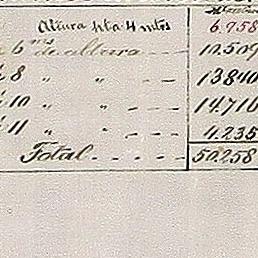 Altura hta 4 mtrs 6.958
6 " de altura 10.509
8 " " 13840
10 " " 14.716
11 " " 4.235
Total 50.258